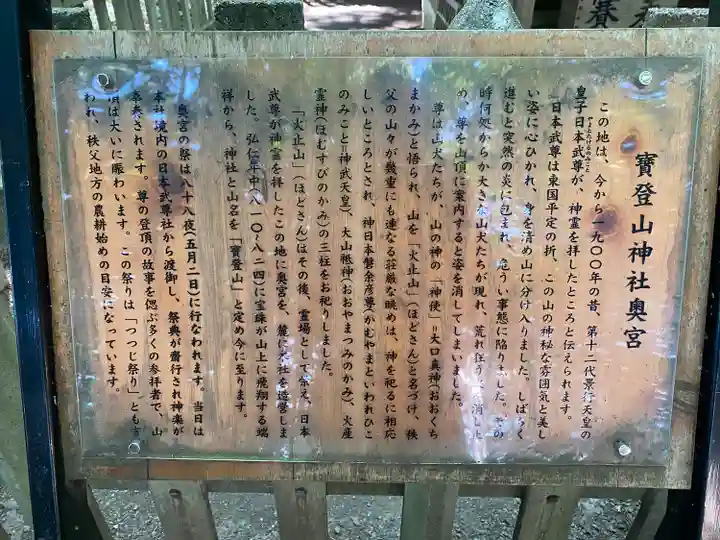 寶登山神社奥宮
この地は、今から一九〇〇年の昔、第十二代景行天皇の
皇子日本武尊が、神霊を拝したところと伝えられます。
やまとたけるのみこと
日本武尊は東国平定の折、この山の神秘な雰囲気と美し
い姿に心ひかれ、身を清め山に分け入りました。しばらく
進むと突然の炎に包まれ、危うい事態に陥りました。その
時何処からか大きな山犬たちが現れ、荒れ狂う 消し止
め、尊を山頂に案内すると姿を消してしまいました。
尊は山犬たちが、山の神の「神使」=大口真神(おおくち
まかみ)と悟られ、山を「火止山」(ほどさん)と名づけ、秩
父の山々が幾重にも連なる荘厳な眺めは、神を祀るに相応
しいところとされ、神日本磐余彦尊(かむやまといわれひこ
のみこと=神武天皇)、大山祇神(おおやまつみのかみ)、火産
霊神(ほむすびのかみ)の三柱をお祀りしました。
「火止山」(ほどさん)はその後、霊場として栄え、日本
武尊が神霊を拝したこの地に奥宮を、麓に本社を造営しま
した。弘仁年中(八一〇~八二四)に宝珠が山上に飛翔する瑞
祥から、神社と山名を「寶登山」と定め今に至ります。
奥宮の祭は八十八夜(五月二日)に行なわれます。当日は
本社境内の日本武尊社から渡御し、祭典が齋行され神楽が
奉奏されます。尊の登頂の故事を偲ぶ多くの参拝者で、山
頂は大いに賑わいます。この祭りは「つつじ祭り」とも
われ、秩父地方の農耕始めの目安になっています。